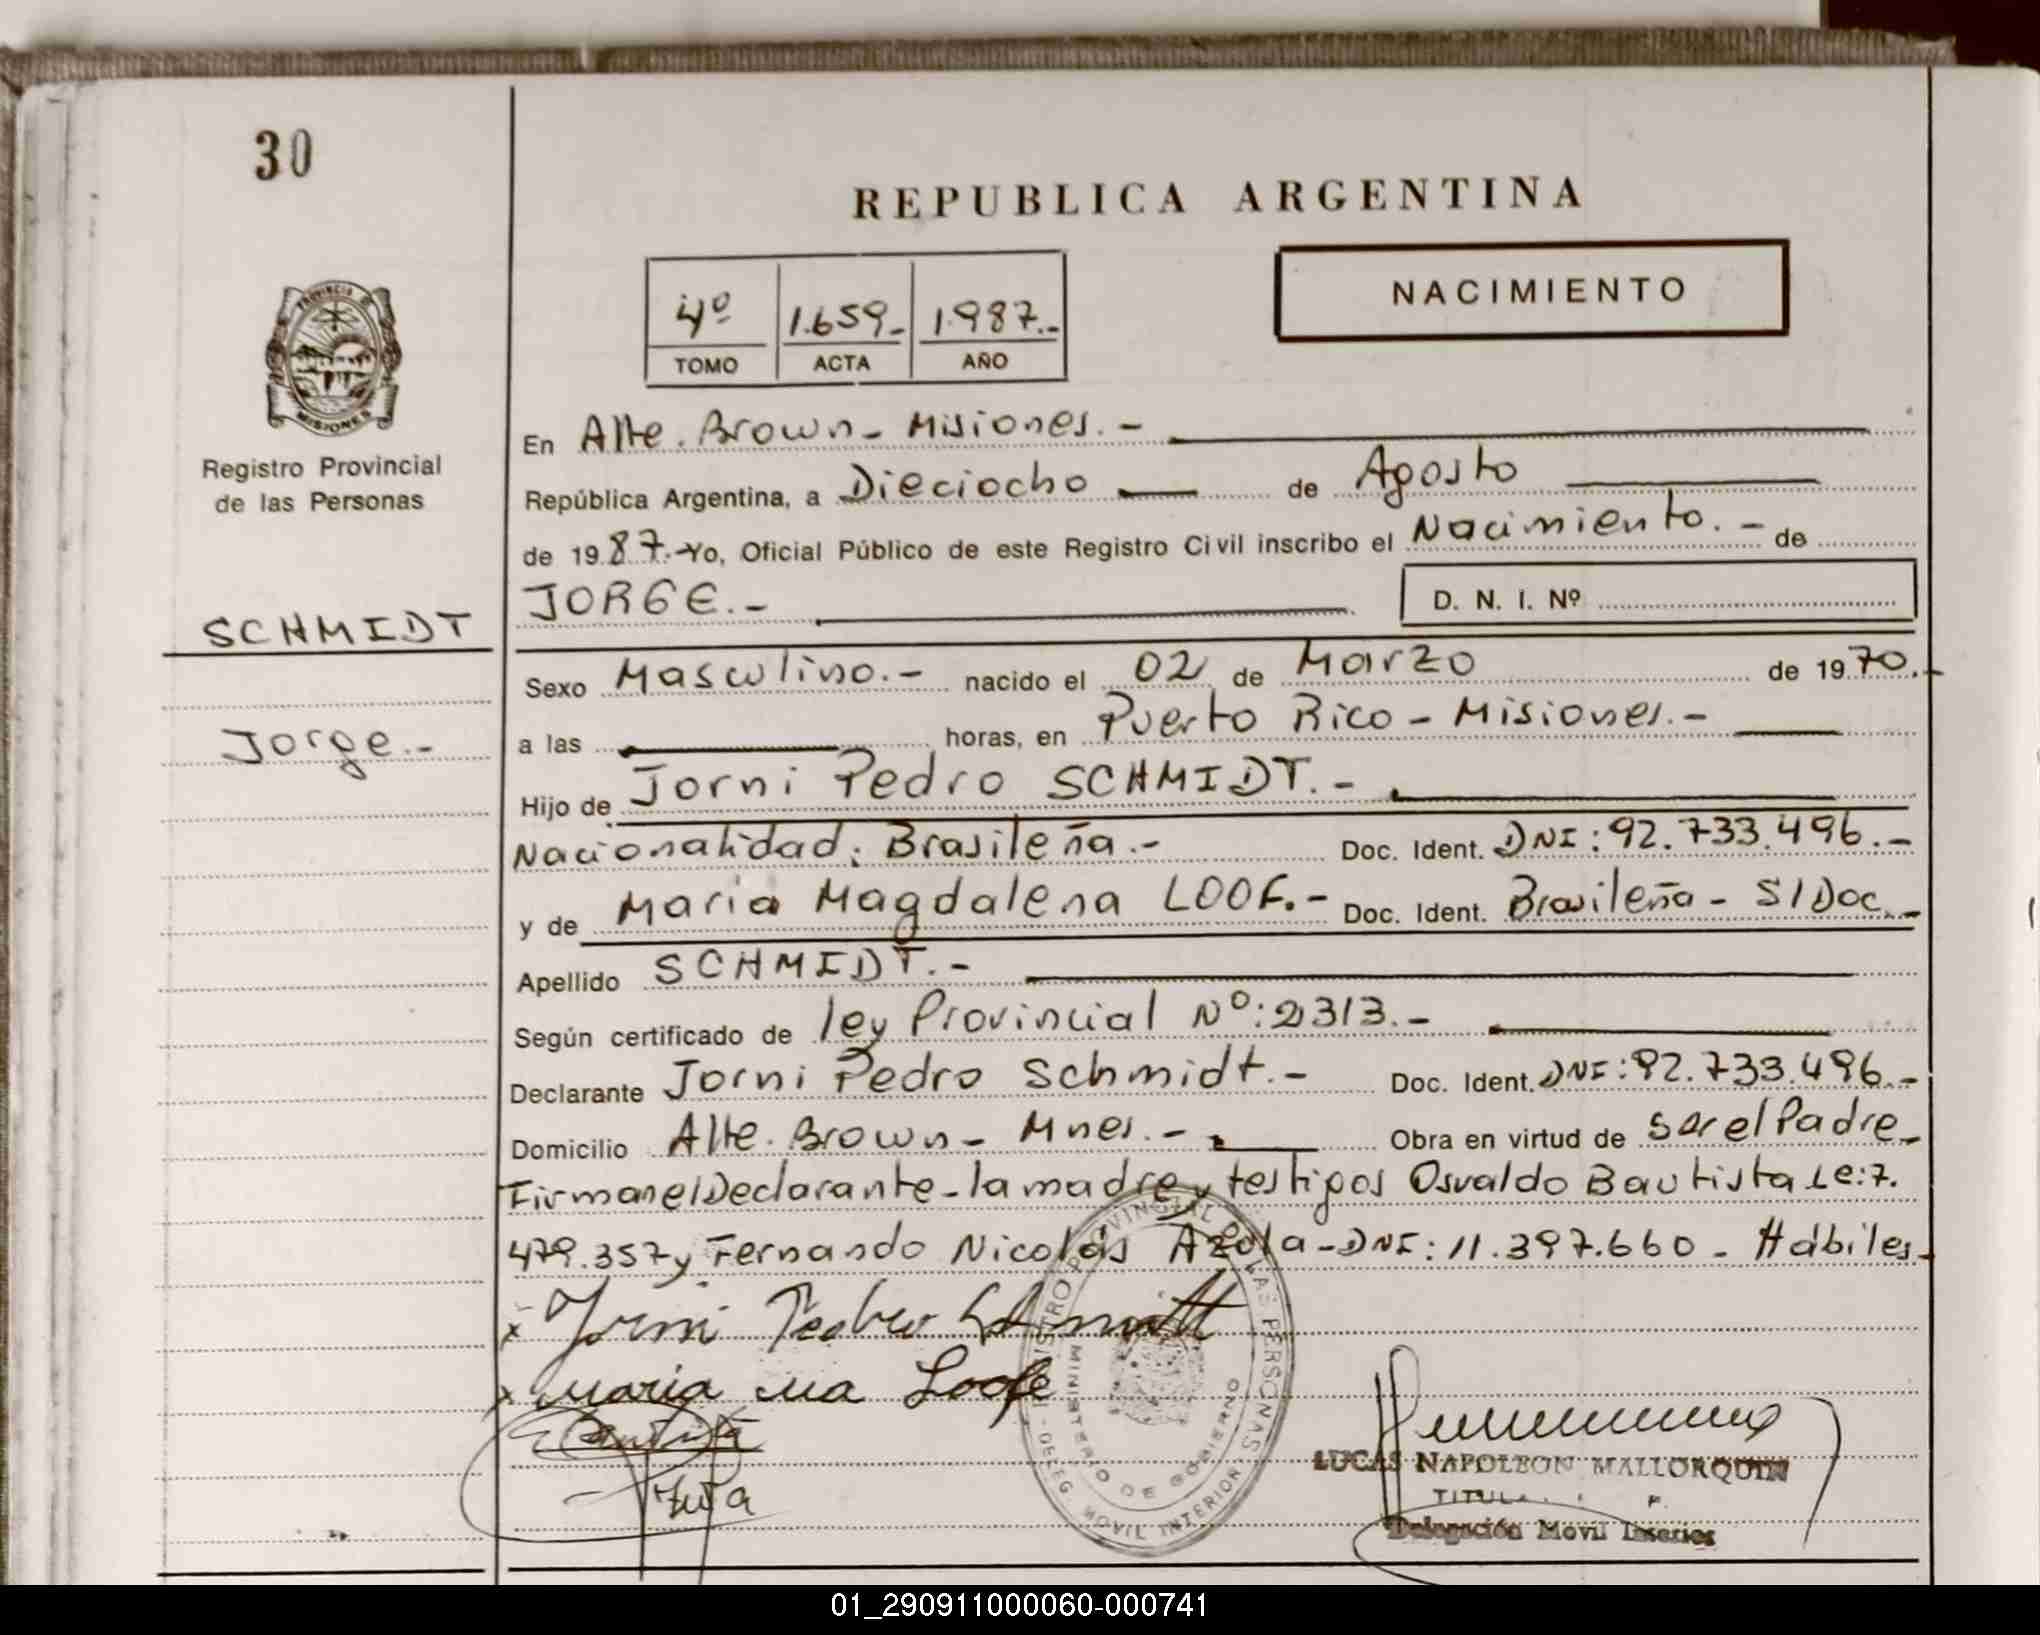 30
REPUBLICA ARGENTINA
4º 1.659.- 1.987.-
TOMO ACTA AÑO
NACIMIENTO
PROVINCIA DE
MISIONES
Registro Provincial
de las Personas
SCHMIDT
Jorge.-
En Alte. Brown - Misiones. -
República Argentina, a Dieciocho de Agosto
de 1987.- Yo, Oficial Público de este Registro Civil inscribo el Nacimiento. - de
JORGE. - D. N. I. Nº
Sexo Masculino. - nacido el 02 de Marzo de 1970.-
a las horas, en Puerto Rico - Misiones. -
Hijo de Jorni Pedro SCHMIDT. -
Nacionalidad: Brasileña. - Doc. Ident. DNI: 92.733.496. -
y de Maria Magdalena LOOF. - Doc. Ident. Brasileña - S/Doc. -
Apellido SCHMIDT. -
Según certificado de ley Provincial Nº: 2313. -
Declarante Jorni Pedro Schmidt. - Doc. Ident. DNI: 92.733.496. -
Domicilio Alte. Brown - Mnes. - Obra en virtud de ser el Padre -
Firman el Declarante - la madre y testigos Osvaldo Bautista Le: 7.
479.357 y Fernando Nicolás Azola - DNI: 11.397.660 - Hábiles -
x Jorni Pedro Schmitt
x Maria Ma Loofe
REGISTRO PROVINCIAL DE LAS PERSONAS
MINISTERIO DE GOBIERNO
DELEG. MOVIL INTERIOR
LUCAS NAPOLEON MALLORQUIN
Delegación Movil Interior
01_290911000060-000741